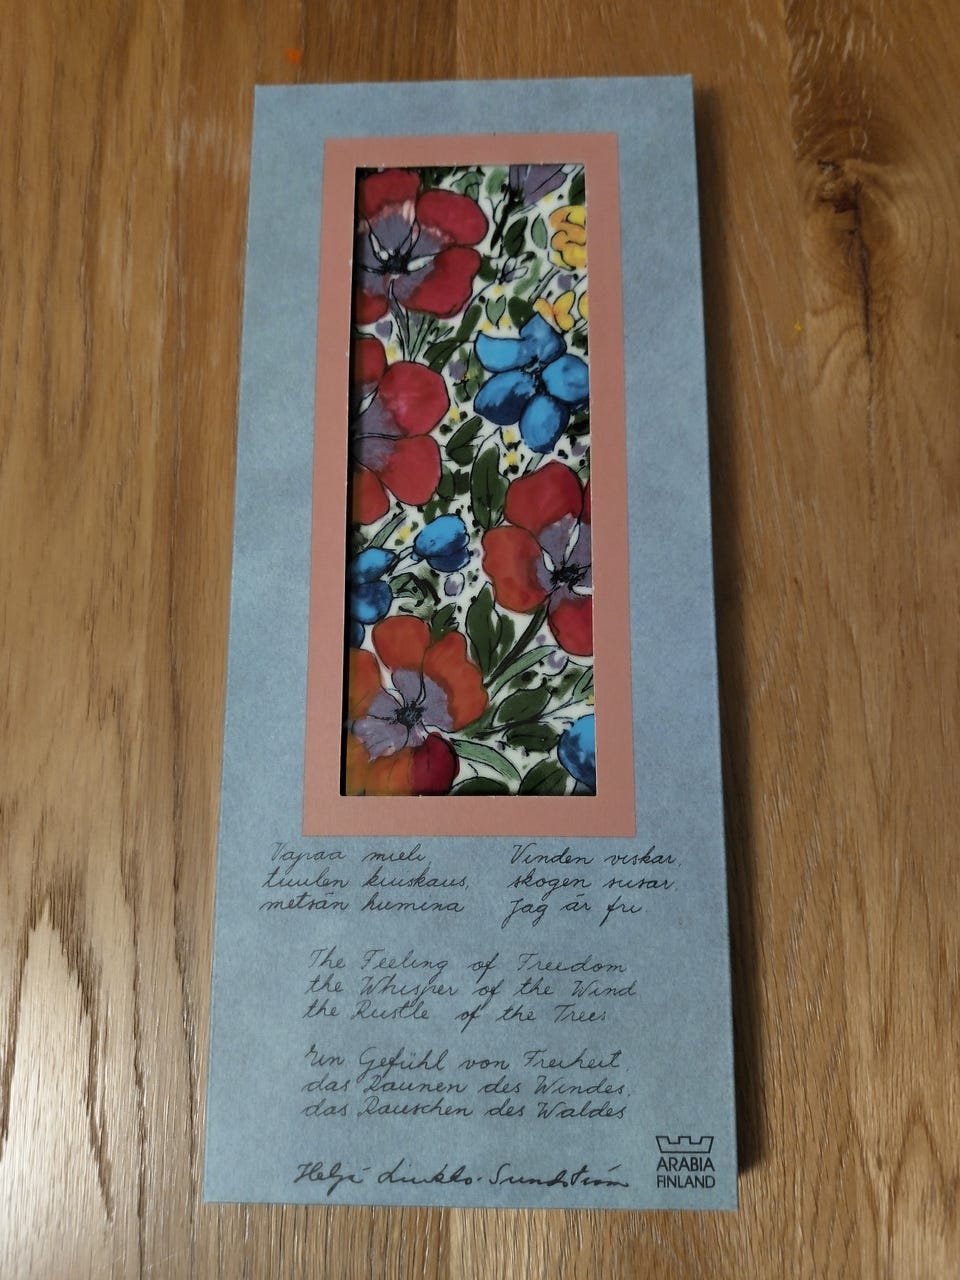 Vapaa mieli,
tuulen kuiskaus,
metsän humina
Vinden viskar,
skogen susar,
jag är fri.
The Feeling of Freedom
the Whisper of the Wind
the Rustle of the Trees
Ein Gefühl von Freiheit,
das Raunen des Windes,
das Rauschen des Waldes
Heljä Liukko-Sundström
ARABIA
FINLAND